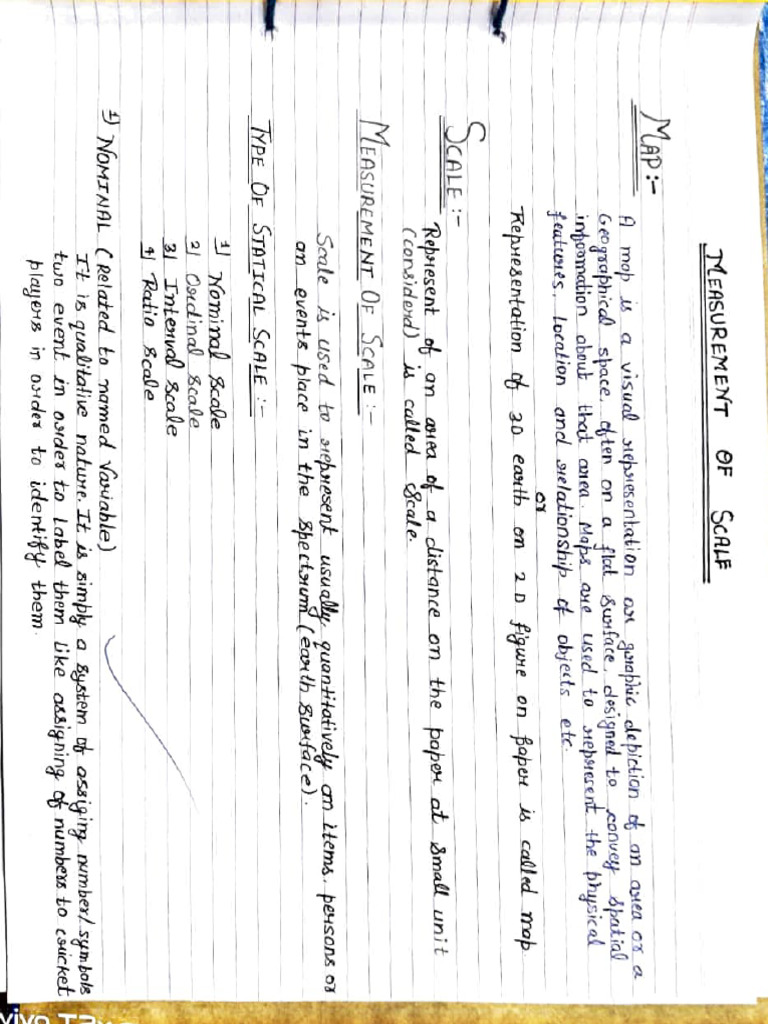 MEASUREMENT OF SCALE
MAP:-
A map is a visual representation or graphic depiction of an area or a
Geographical space, often on a flat surface, designed to convey spatial
information about that area. Maps are used to represent the physical
features, Location and relationship of objects etc.
or
Representation of 3D earth on 2D figure on paper is called map.
SCALE:-
Represent of an area of a distance on the paper at small unit
(considerd) is called Scale.
MEASUREMENT OF SCALE:-
Scale is used to represent usually quantitatively on items, persons or
an events place in the spectrum (earth surface).
TYPE OF STATICAL SCALE:-
1) Nominal Scale
2) Ordinal Scale
3) Interval Scale
4) Ratio Scale
1) NOMINAL (Related to named Variable)
It is qualitative nature. It is simply a system of assiging number/symbols
two event in order to Label them like assigning of numbers to cricket
players in order to identify them.